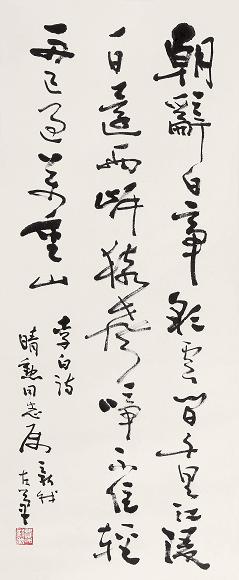 朝辭白帝彩雲間千里江陵
一日還兩岸猿聲啼不住輕
舟已過萬重山
李白詩
晴勲同志属
新我
左筆